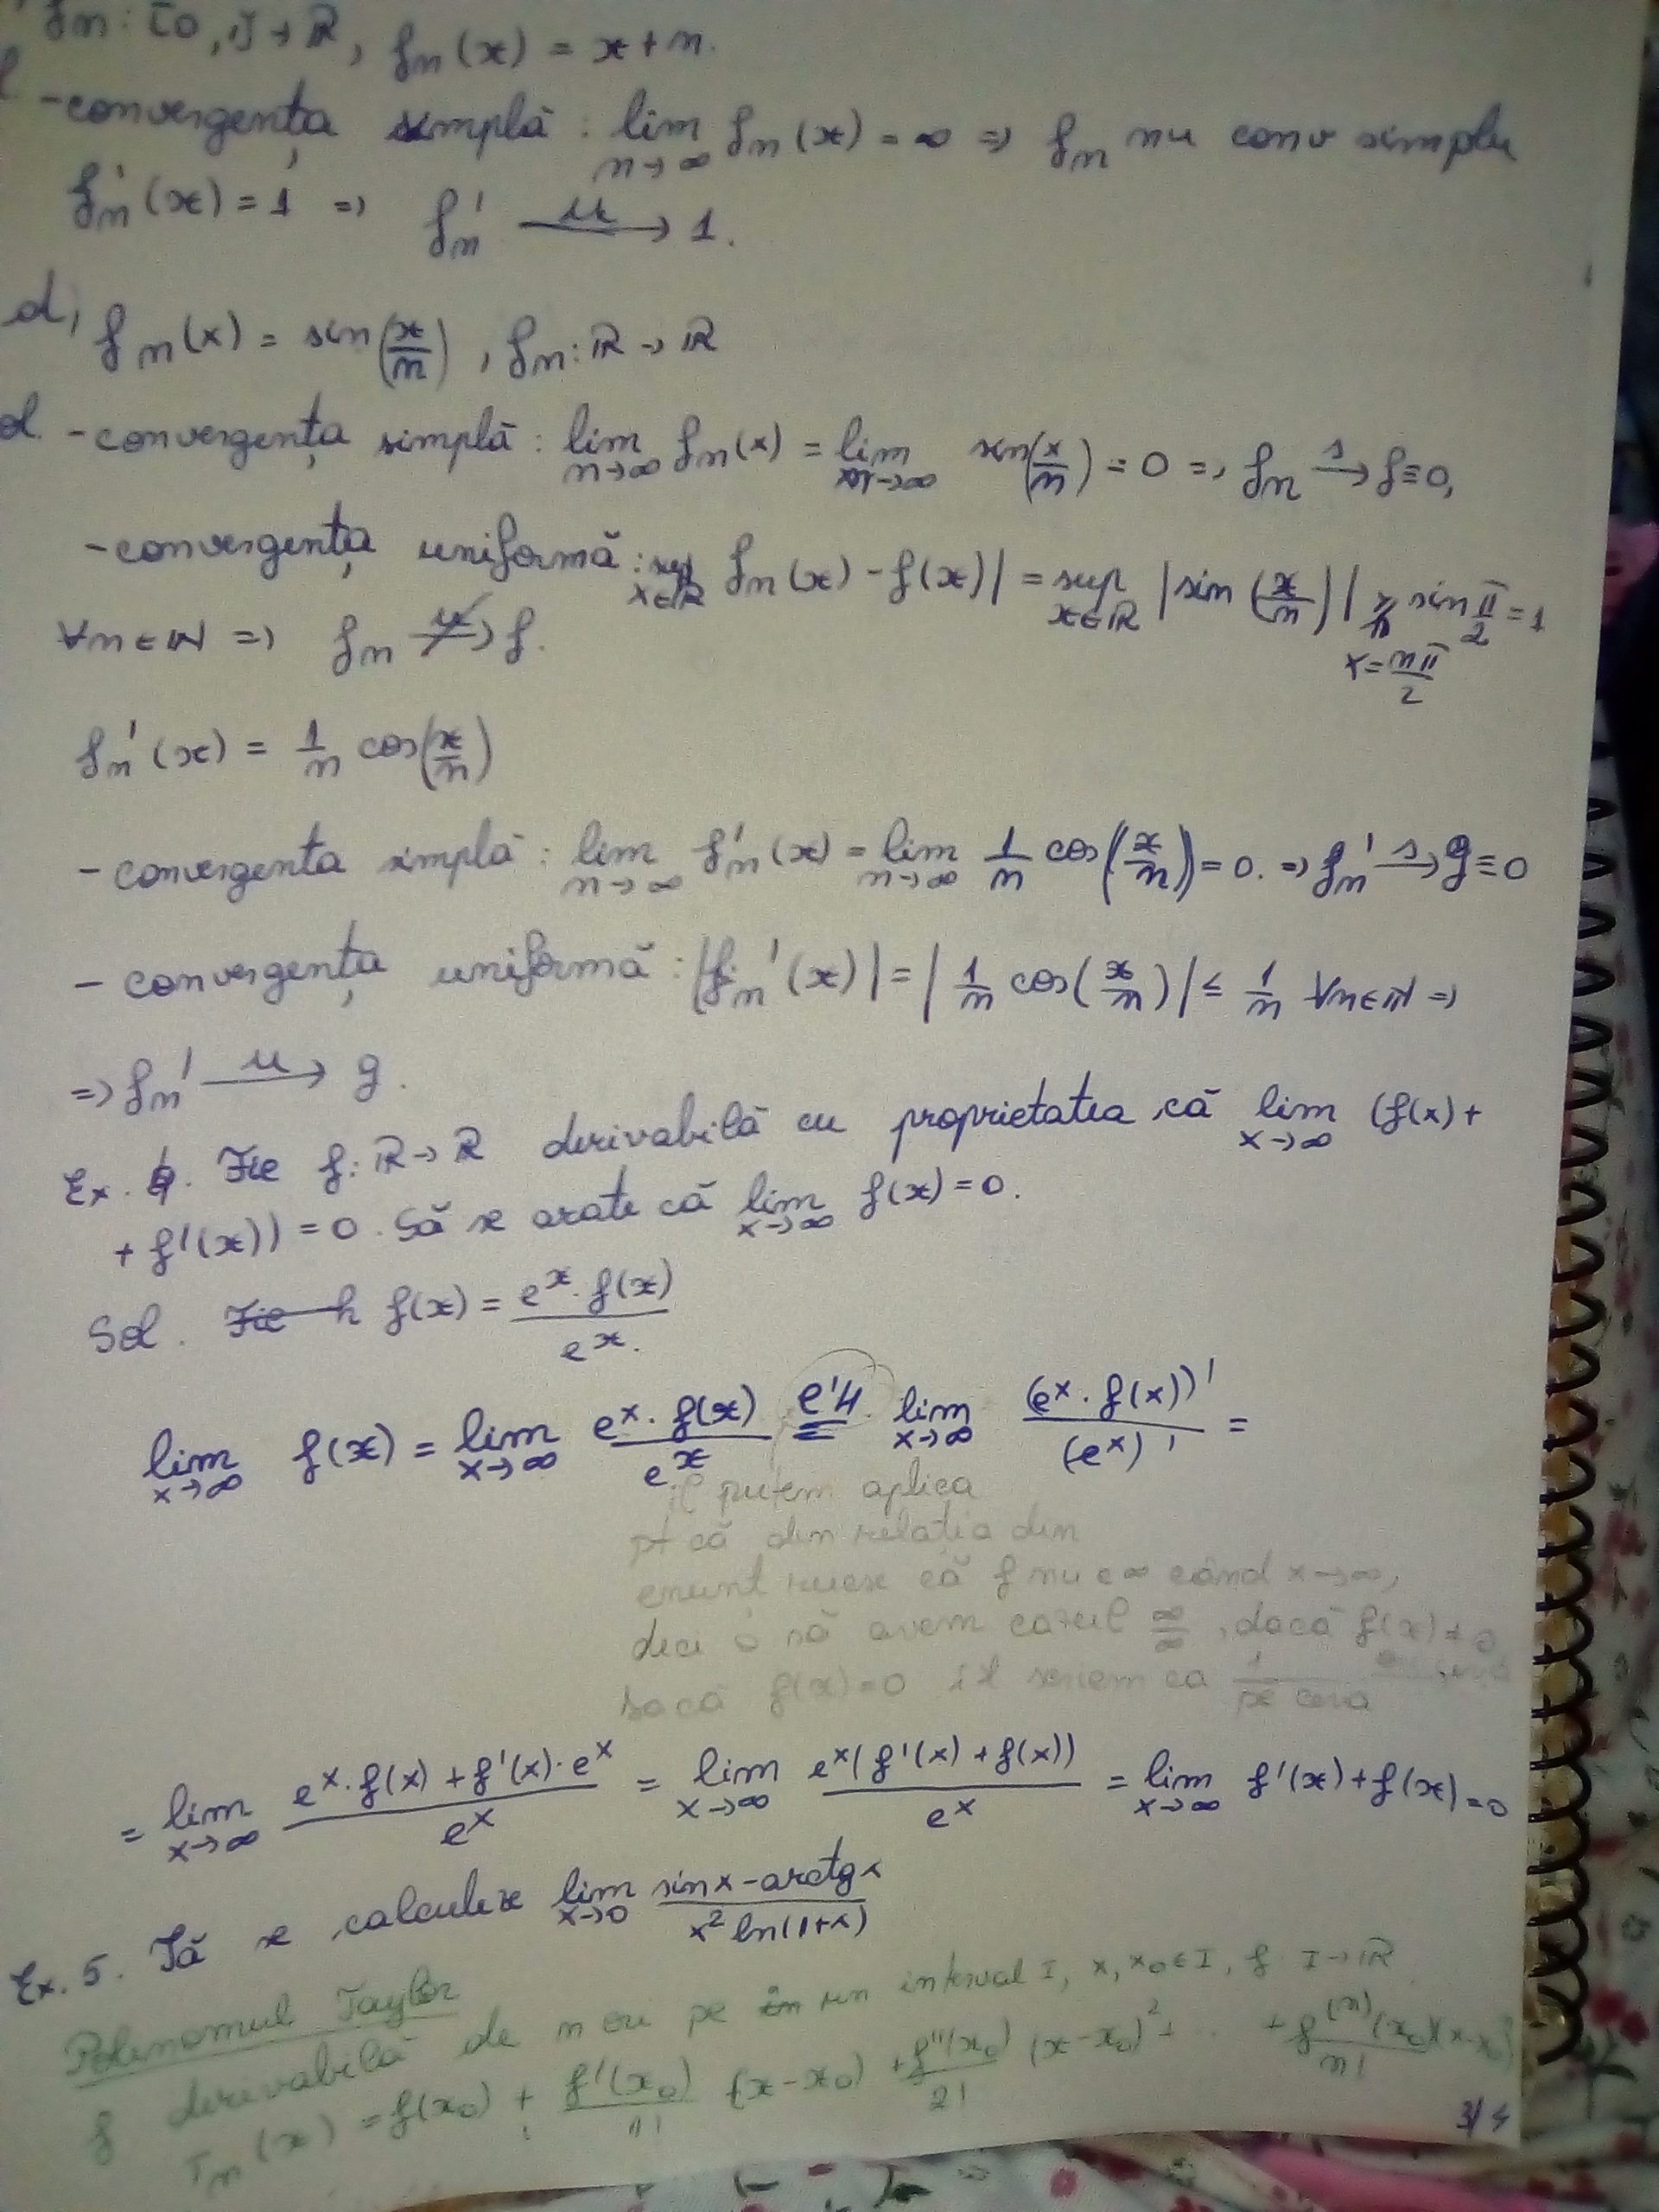 fn: [0,1]→ℝ, fn(x) = x+n.
-convergența simplă : lim n→∞ fn(x) = ∞ => fn nu conv simplu
fn'(x) = 1 => fn' —u→ 1.
d, fn(x) = sin(x/n), fn: ℝ→ℝ
-convergența simplă : lim n→∞ fn(x) = lim n→∞ sin(x/n) = 0 => fn —s→ f≡0,
-convergența uniformă : sup x∈ℝ fn(x) - f(x)| = sup x∈ℝ |sin (x/n)| ≥ sin π/2 = 1
x = nπ/2
∀n∈ℕ => fn —u↛ f.
fn'(x) = 1/n cos(x/n)
-convergenta simplă : lim n→∞ fn'(x) = lim n→∞ 1/n cos(x/n) = 0. => fn' —s→ g≡0
- convergența uniformă : |fn'(x)| = | 1/n cos(x/n)| ≤ 1/n ∀n∈ℕ =>
=> fn' —u→ g.
Ex. 4. Fie f: ℝ→ℝ derivabilă cu proprietatea că lim x→∞ (f(x)+
+ f'(x)) = 0. Să se arate că lim x→∞ f(x) = 0.
Sol. Fie h f(x) = e^x · f(x) / e^x.
lim x→∞ f(x) = lim x→∞ e^x · f(x) / e^x =(l'H) lim x→∞ (e^x · f(x))' / (e^x)' =
îl putem aplica
pt că din relația din
enunț reiese că f nu e ∞ când x→∞,
deci o să avem cazul ∞/∞, dacă f(x)≠0
Dacă f(x)=0 îl scriem ca 1/pe ceva
= lim x→∞ e^x · f(x) + f'(x) · e^x / e^x = lim x→∞ e^x(f'(x) + f(x)) / e^x = lim x→∞ f'(x)+f(x) = 0
Ex. 5. Să se calculeze lim x→0 sinx - arctg x / x² ln(1+x)
Polinomul Taylor
f derivabilă de n ori pe un interval I, x, x₀∈I, f I→ℝ
Tn(x) = f(x₀) + f'(x₀)/1! (x-x₀) + f''(x₀)/2! (x-x₀)² + .. + f^(n)(x₀)/n! (x-x₀)
3/4